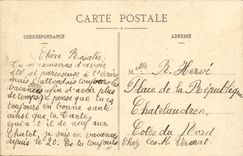 CARTE POSTALE
CORRESPONDANCE
ADRESSE
Chère Rosalie
Tu m'excuseras d'avoir
été si paresseuse à t'écrire
mais j'attendais toujours les
vacances afin d'avoir plus
de temps. Je pense que tu es
toujours en bonne santé
ainsi que ta
qu'il
Chatel. Je suis en vacances
depuis le 20. Es tu toujours
Mlle R. Hervé
Place de la République
Chatelaudren
Côtes du Nord
Chez